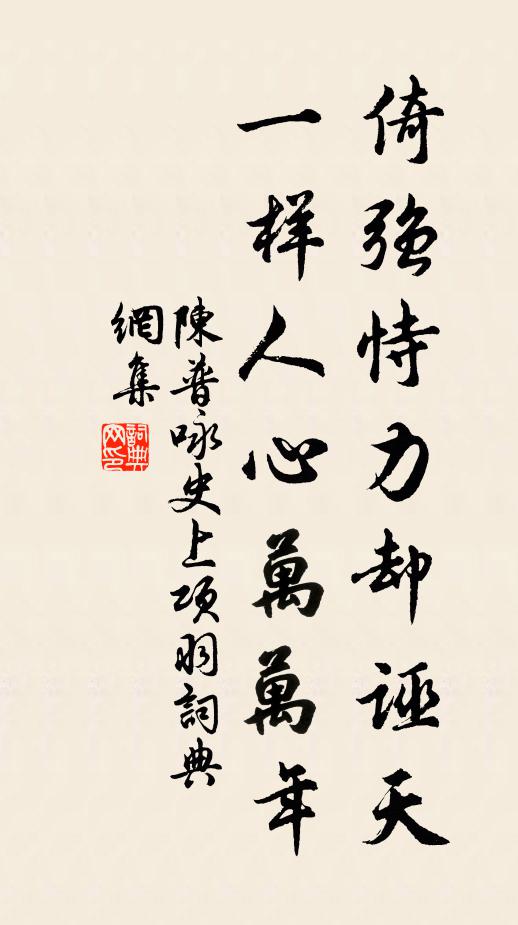 倚強恃力却誣天
一样人心萬萬年
陳普咏史上項羽詞典
網集
詞典
网印